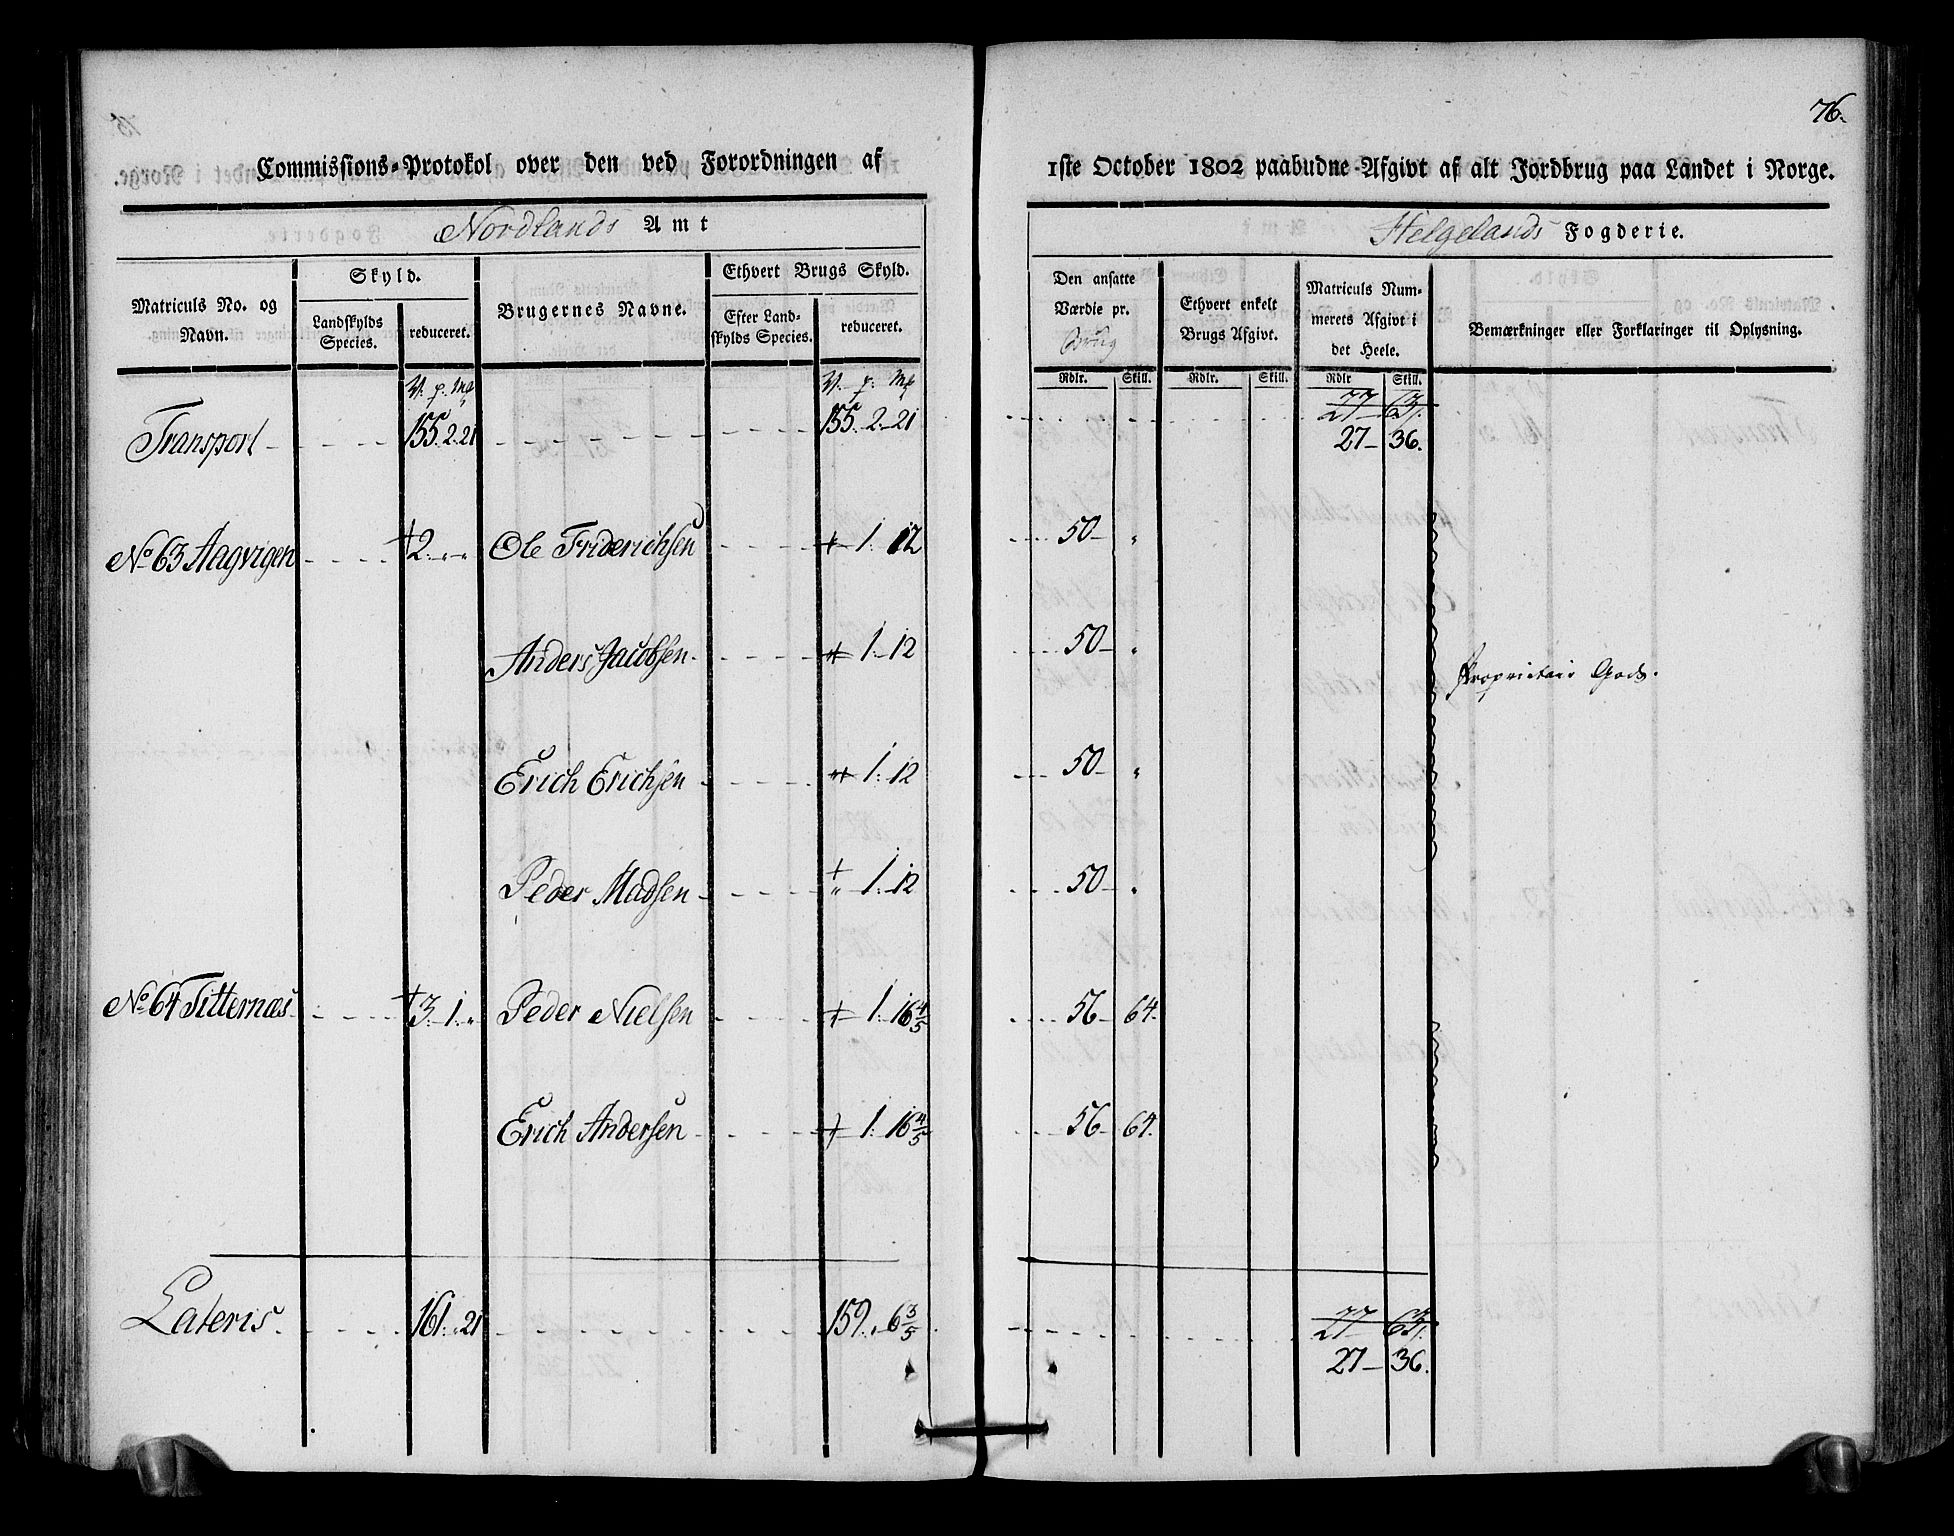 76.
Commissions-Protokol over den ved Forordningen af 1ste October 1802 paabudne Afgivt af alt Jordbrug paa Landet i Norge.
Nordlands Amt
Helgelands Fogderie.
Matriculs No. og Navn.
Skyld.
Landskylds Species.
reduceret.
Brugernes Navne.
Ethvert Brugs Skyld.
Efter Landskylds Species.
reduceret.
Den ansatte Værdie pr. Brug
Ethvert enkelt Brugs Afgivt.
Matriculs Nummerets Afgivt i det Heele.
Bemærkninger eller Forklaringer til Oplysning.
Rdlr. Skill. Rdlr. Skill. Rdlr Skill.
V. p. Mk V. p. Mk
Transport 155. 2. 21 155. 2. 21 27 63.
27 36.
No 63 Aagvigen 2. „ „ Ole Friderichsen 1. 12 50 „
Anders Jacobsen 1. 12 50 „
Proprietair Gods.
Erich Erichsen 1. 12 50 „
Peder Madsen „ 1. 12 50 „
No 64 Titternæs 3. 1. „ Peder Nielsen 1. 16 4/5 56 64.
Erich Andersen 1. 16 4/5 56 64.
Lateris 161. „ 21 159. „ 6 3/5 27 63.
27 36.